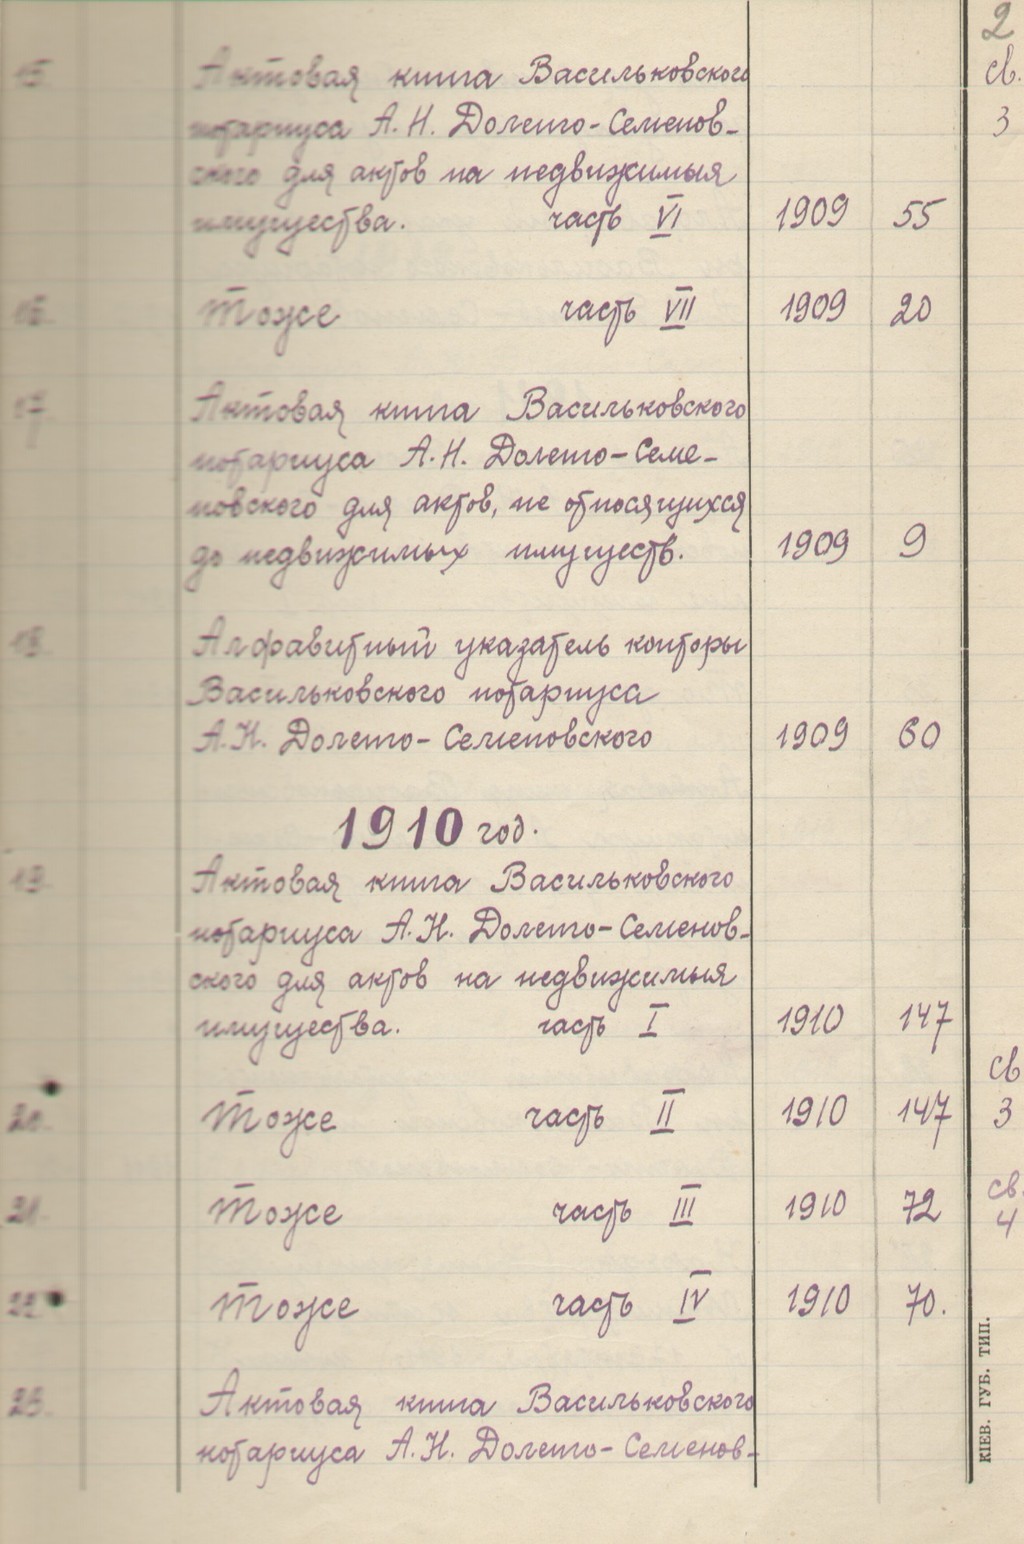 2
св.
3
15. Актовая книга Васильковского
нотариуса А. Н. Долемго-Семенов-
ского для актов на недвижимыя
имущества. часть VI 1909 55
16. Тоже часть VII 1909 20
17. Актовая книга Васильковского
нотариуса А. Н. Долемго-Семе-
новского для актов, не относящихся
до недвижимых имуществ. 1909 9
18. Алфавитный указатель конторы
Васильковского нотариуса
А. Н. Долемго-Семеновского 1909 60
1910 год.
19. Актовая книга Васильковского
нотариуса А. Н. Долемго-Семенов-
ского для актов на недвижимыя
имущества. часть I 1910 147
св
20. Тоже часть II 1910 147 3
св.
21. Тоже часть III 1910 72 4
22. Тоже часть IV 1910 70.
23. Актовая книга Васильковского
нотариуса А. Н. Долемго-Семенов-
КІЕВ. ГУБ. ТИП.